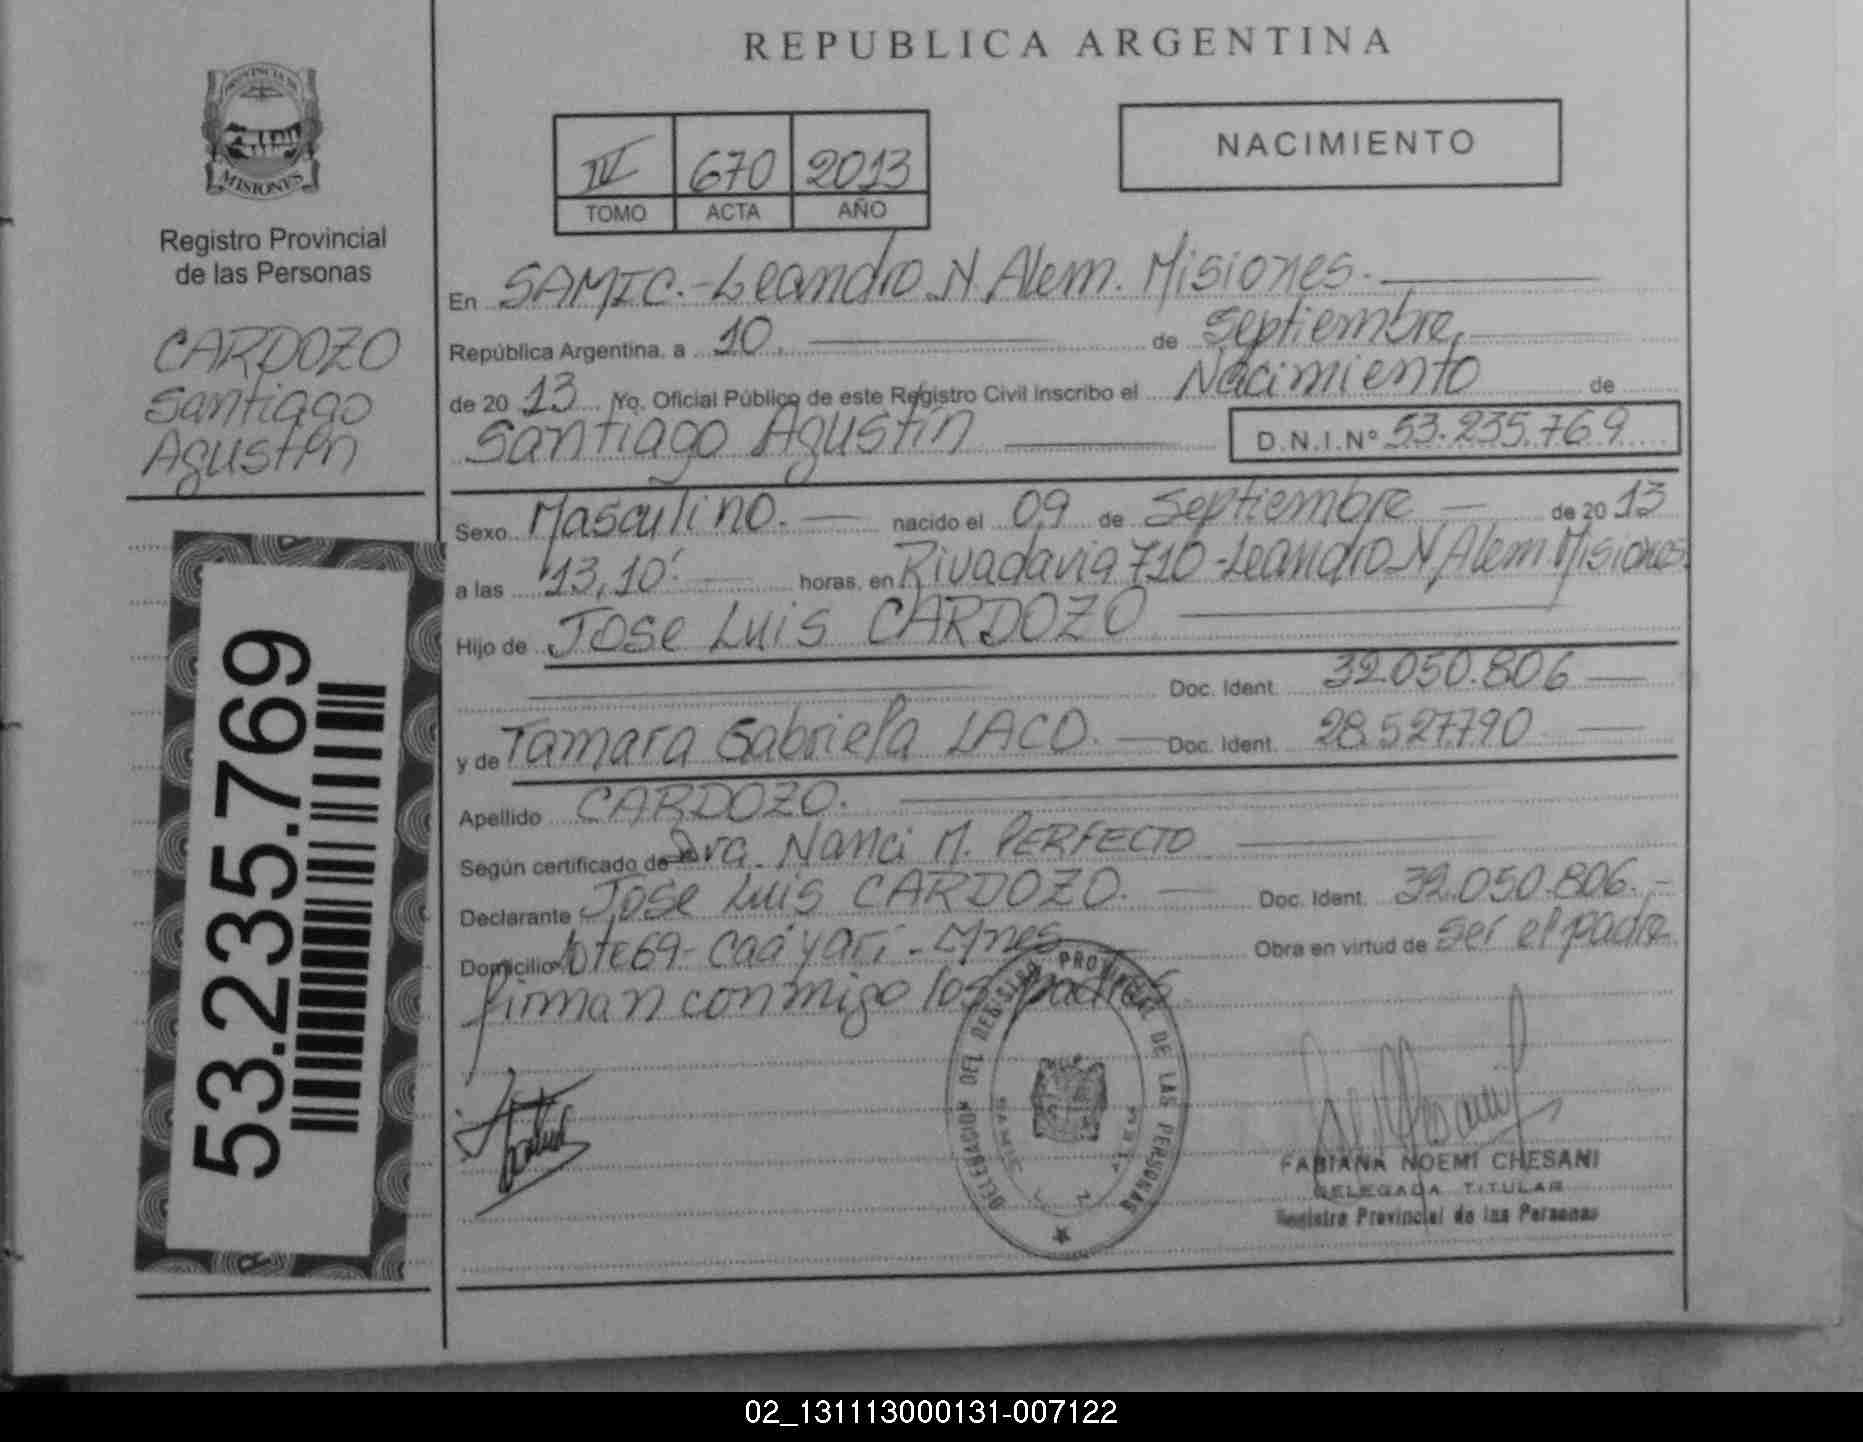 REPUBLICA ARGENTINA
PROVINCIA DE
MISIONES
Registro Provincial
de las Personas
CARDOZO
Santiago
Agustín
53.235.769
IV 670 2013
TOMO ACTA AÑO
NACIMIENTO
En SAMIC.-Leandro N Alem. Misiones.
República Argentina, a 10 de Septiembre
de 20 13 Yo, Oficial Público de este Registro Civil Inscribo el Nacimiento de
Santiago Agustín D.N.I.Nº 53.235.769
Sexo Masculino. nacido el 09 de Septiembre de 20 13
a las 13,10' horas, en Rivadavia 710-Leandro N Alem Misiones.
Hijo de Jose Luis CARDOZO
Doc. Ident. 32.050.806
y de Tamara Gabriela LACO. Doc. Ident. 28.527.790
Apellido CARDOZO.
Según certificado de Dra. Nanci M. PERFECTO
Declarante Jose Luis CARDOZO. Doc. Ident. 32.050.806.
Domicilio lote 69- Caá yarí - Mnes Obra en virtud de ser el padre
firman conmigo los padres
DELEGACION DEL REGISTRO PROVINCIAL DE LAS PERSONAS
FABIANA NOEMI CHESANI
DELEGADA TITULAR
Registro Provincial de las Personas
02_131113000131-007122